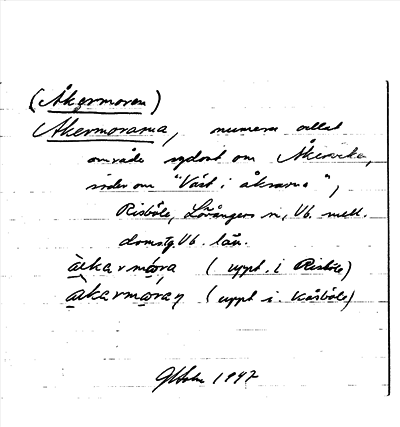 (Åkermoren)
Åkermorarna, numera odlat
område sydost om
söder om "Väst i åkrarna",
Risböle, Lövångers sn, Vb. mell.
domsg. Vb. län.
àkarmóra (uppt. i Risböle)
àkarmóraṇ (uppt. i Kåsböle)
1947